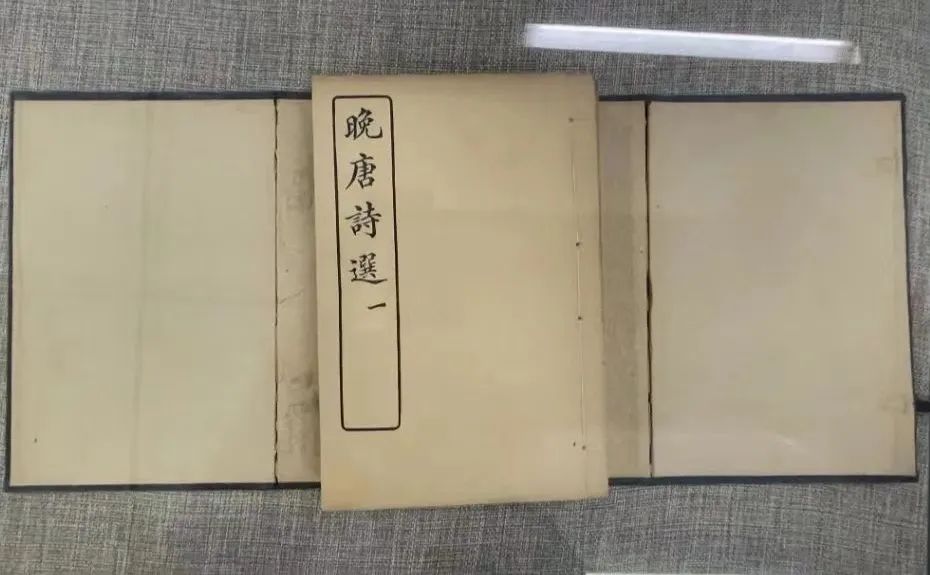 晚唐詩選一